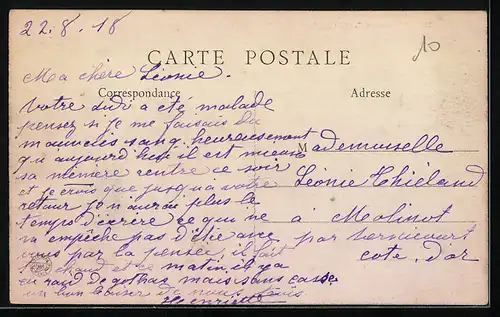 22.8.18
10
CARTE POSTALE
Ma chère Léonie.
Correspondance
Adresse
Votre a été malade
pensez si je me faisais du
mauvais sang heureusement
qu aujourd hui il est mieux
sa remere rentre ce soir
et je crois que jusqua votre
retour je n aurai plus le
temps d'écrire ce qui ne
m empêche pas d'être avec
vous par la pensée, il fait
chaud et ce matin il y a
eu raid de gothas mais sans casse
un bon baiser de nous
Henriette
Mademoiselle
Léonie Thiéland
à Molinot
par
cote d'or